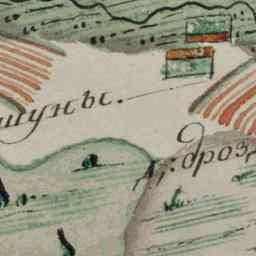 шунь.
д: дроз